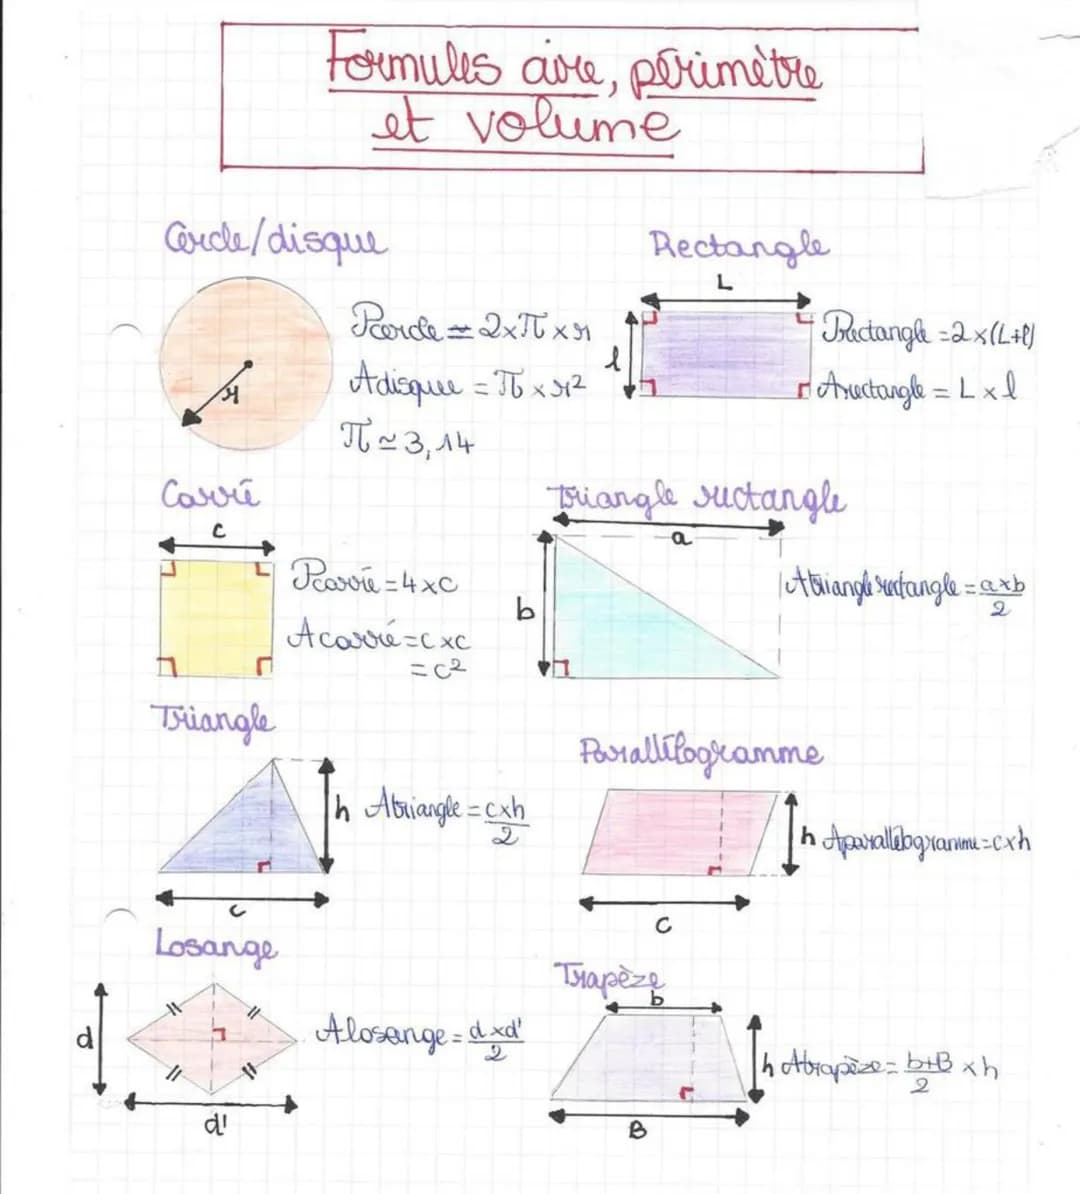 Formules aire, périmètre
et volume
Cercle/disque
r
Pcercle = 2×π×r
Adisque = π×r²
π ≃ 3,14
Rectangle
L
l
Prectangle = 2×(L+l)
Arectangle = L×l
Carré
c
Pcarré = 4×c
Acarré = c×c
= c²
Triangle rectangle
a
b
Atriangle rectangle = a×b/2
Triangle
h
c
Atriangle = c×h/2
Parallélogramme
h
c
Aparallélogramme = c×h
Losange
d
d'
Alosange = d×d'/2
Trapèze
b
h
B
Atrapèze = b+B/2 ×h